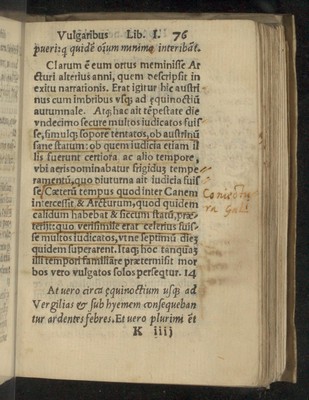 Vulgaribus Lib. I. 76
pueriꝗ quidē oĩum minime interibāt.
Clarum ē eum ortus meminisse Ar
cturi alterius anni, quem descripsit in
exitu narrationis. Erat igitur hic austri
nus cum imbribus vsꝗ ad ęquinoctiũ
autumnale. Atꝗ hac āit tēpestate die
vndecimo secure multos iudicatos suis
se, simulꝗ sopore tentatos, ob austrinũ
sane statum: ob quem iudicia etiam il
lis fuerunt certiora ac alio tempore,
vbi aeris dominabatur frigidus tempe
ramentũ, quo diuturna ait iudicia fuis
se, Cęterũ tempus quod inter Canem
intercessit & Arcturum, quod quidem
calidum habebat & siccum statũ, prę
terijt: quo verisimile erat celerius suis
se multos iudicatos, vt ne septimũ diez
quidem superarent. Itaꝗ hoc tanꝗuaʒ
illi tempori familiāre prætermisit mor
bos vero vulgatos solos persequitur. 14
At vero circa ęquinoctium usꝗ ad
Vergilias & sub hyemem consequeban
tur ardentes febres. Et vero plurimi ēt
K iiij